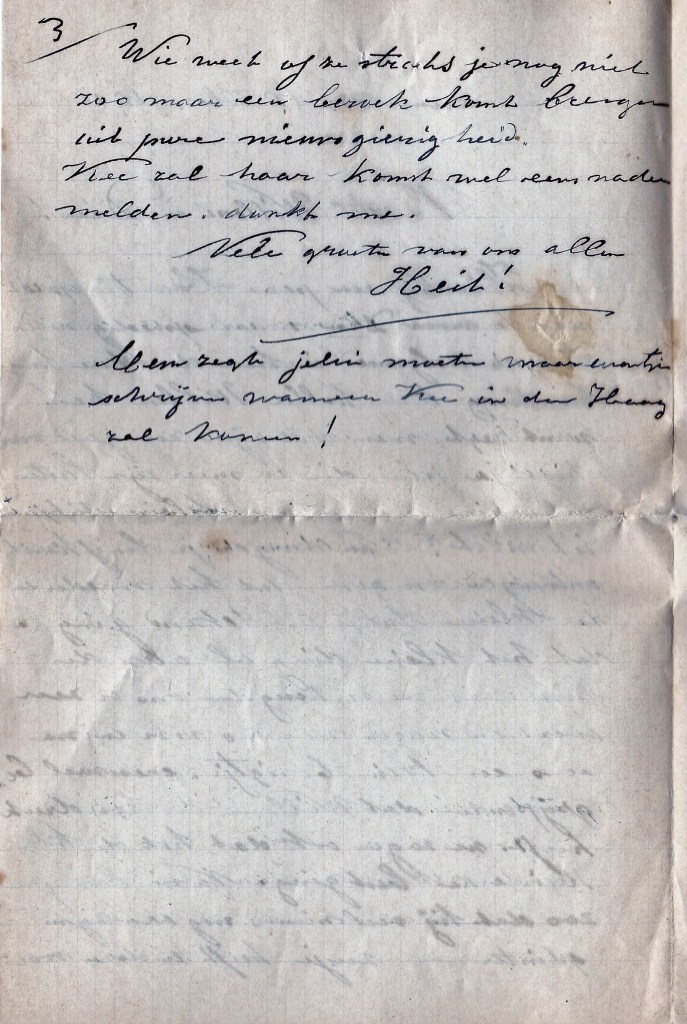 3
Wie weet of ze straks je nog niet
zoo maar een bezoek komt brengen
uit pure nieuwsgierigheid.
Kee zal haar komst wel eens nader
melden. dunkt me.
Vele groeten van ons allen
Heit!
Mem zegt jelui moeten maar eventje
schrijven wanneer Kee in den Haag
zal komen!